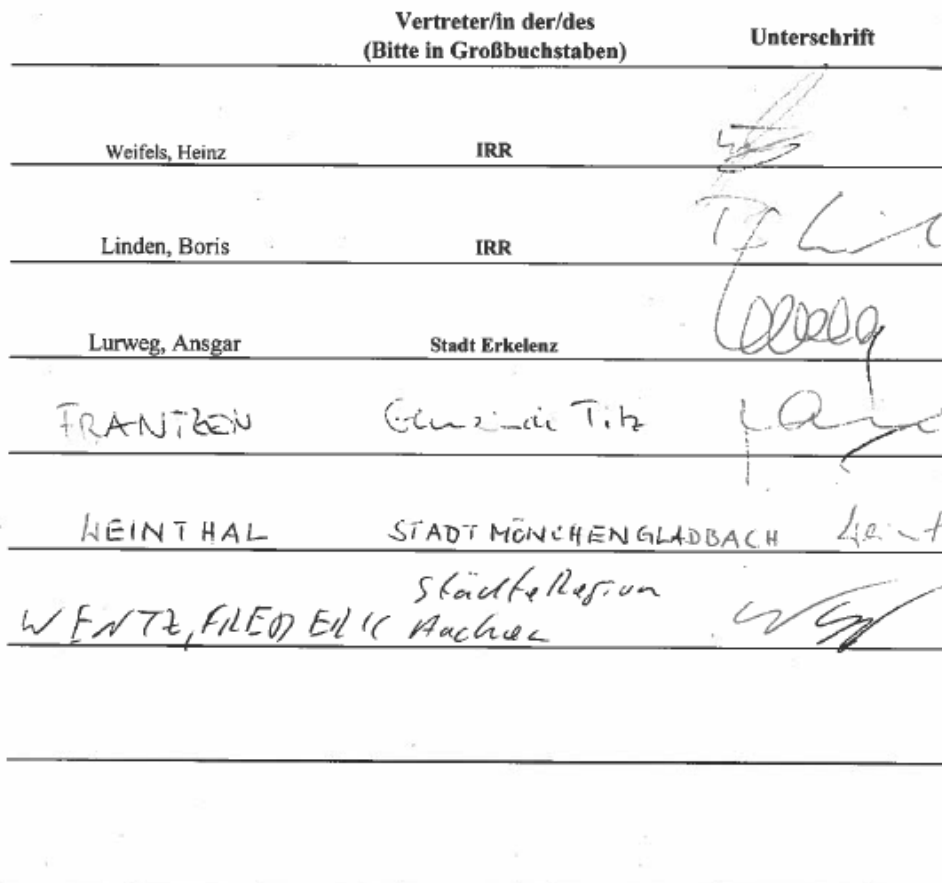 Vertreter/in der/des
(Bitte in Großbuchstaben)
Unterschrift
Weifels, Heinz IRR
Linden, Boris IRR
Lurweg, Ansgar Stadt Erkelenz
FRANTZEN Gemeinde Titz
WEINTHAL STADT MÖNCHENGLADBACH
StädteRegion
WENTZ, FREDERIC Aachen